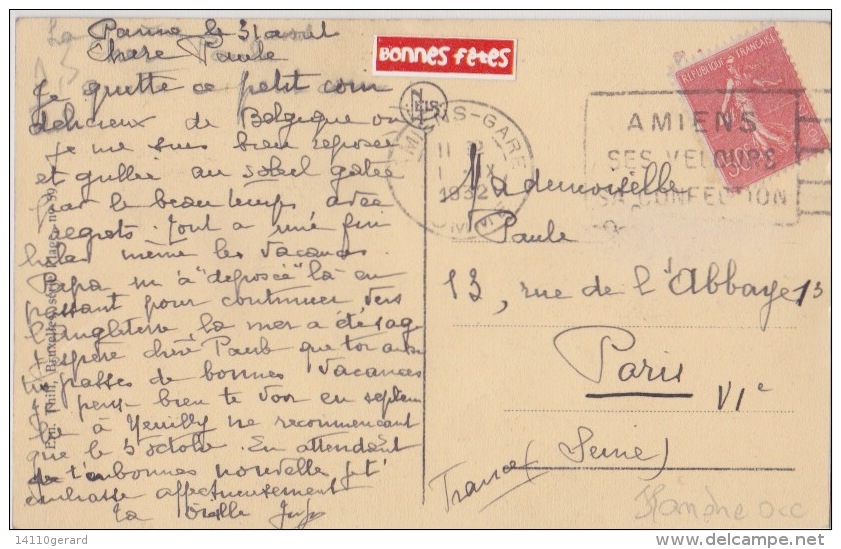 La Panne le 31 aout
Chere Paule
Je quitte ce petit coin
delicieux de Belgique ou
je me suis bien reposée
et grillée au soleil gatée
par le beau temps avec
regrets. tout a une fin
helas même les vacances
Papa m'a "deposée" là en
passant pour continuer vers
l'Angleterre, la mer a été sage
J'espère chère Paule que toi aussi
tu passes de bonnes vacances
Je pense bien te voir en septem
bre à Neuilly ne recommençant
que le 3 octobre. En attendant
de bonnes nouvelles je t'
embrasse affectueusement
ta vieille
BONNES FÊTES
AMIENS-GARE
1932
SOMME
AMIENS
SES VELOURS
SA CONFECTION
REPUBLIQUE FRANÇAISE
50c
Mademoiselle
Paule
13, rue de l'Abbaye 13
Paris
VIe
(Seine)
France
Flandre occ
Ern. Thill, Bruxelles, série
14110gerard
delcampe.net